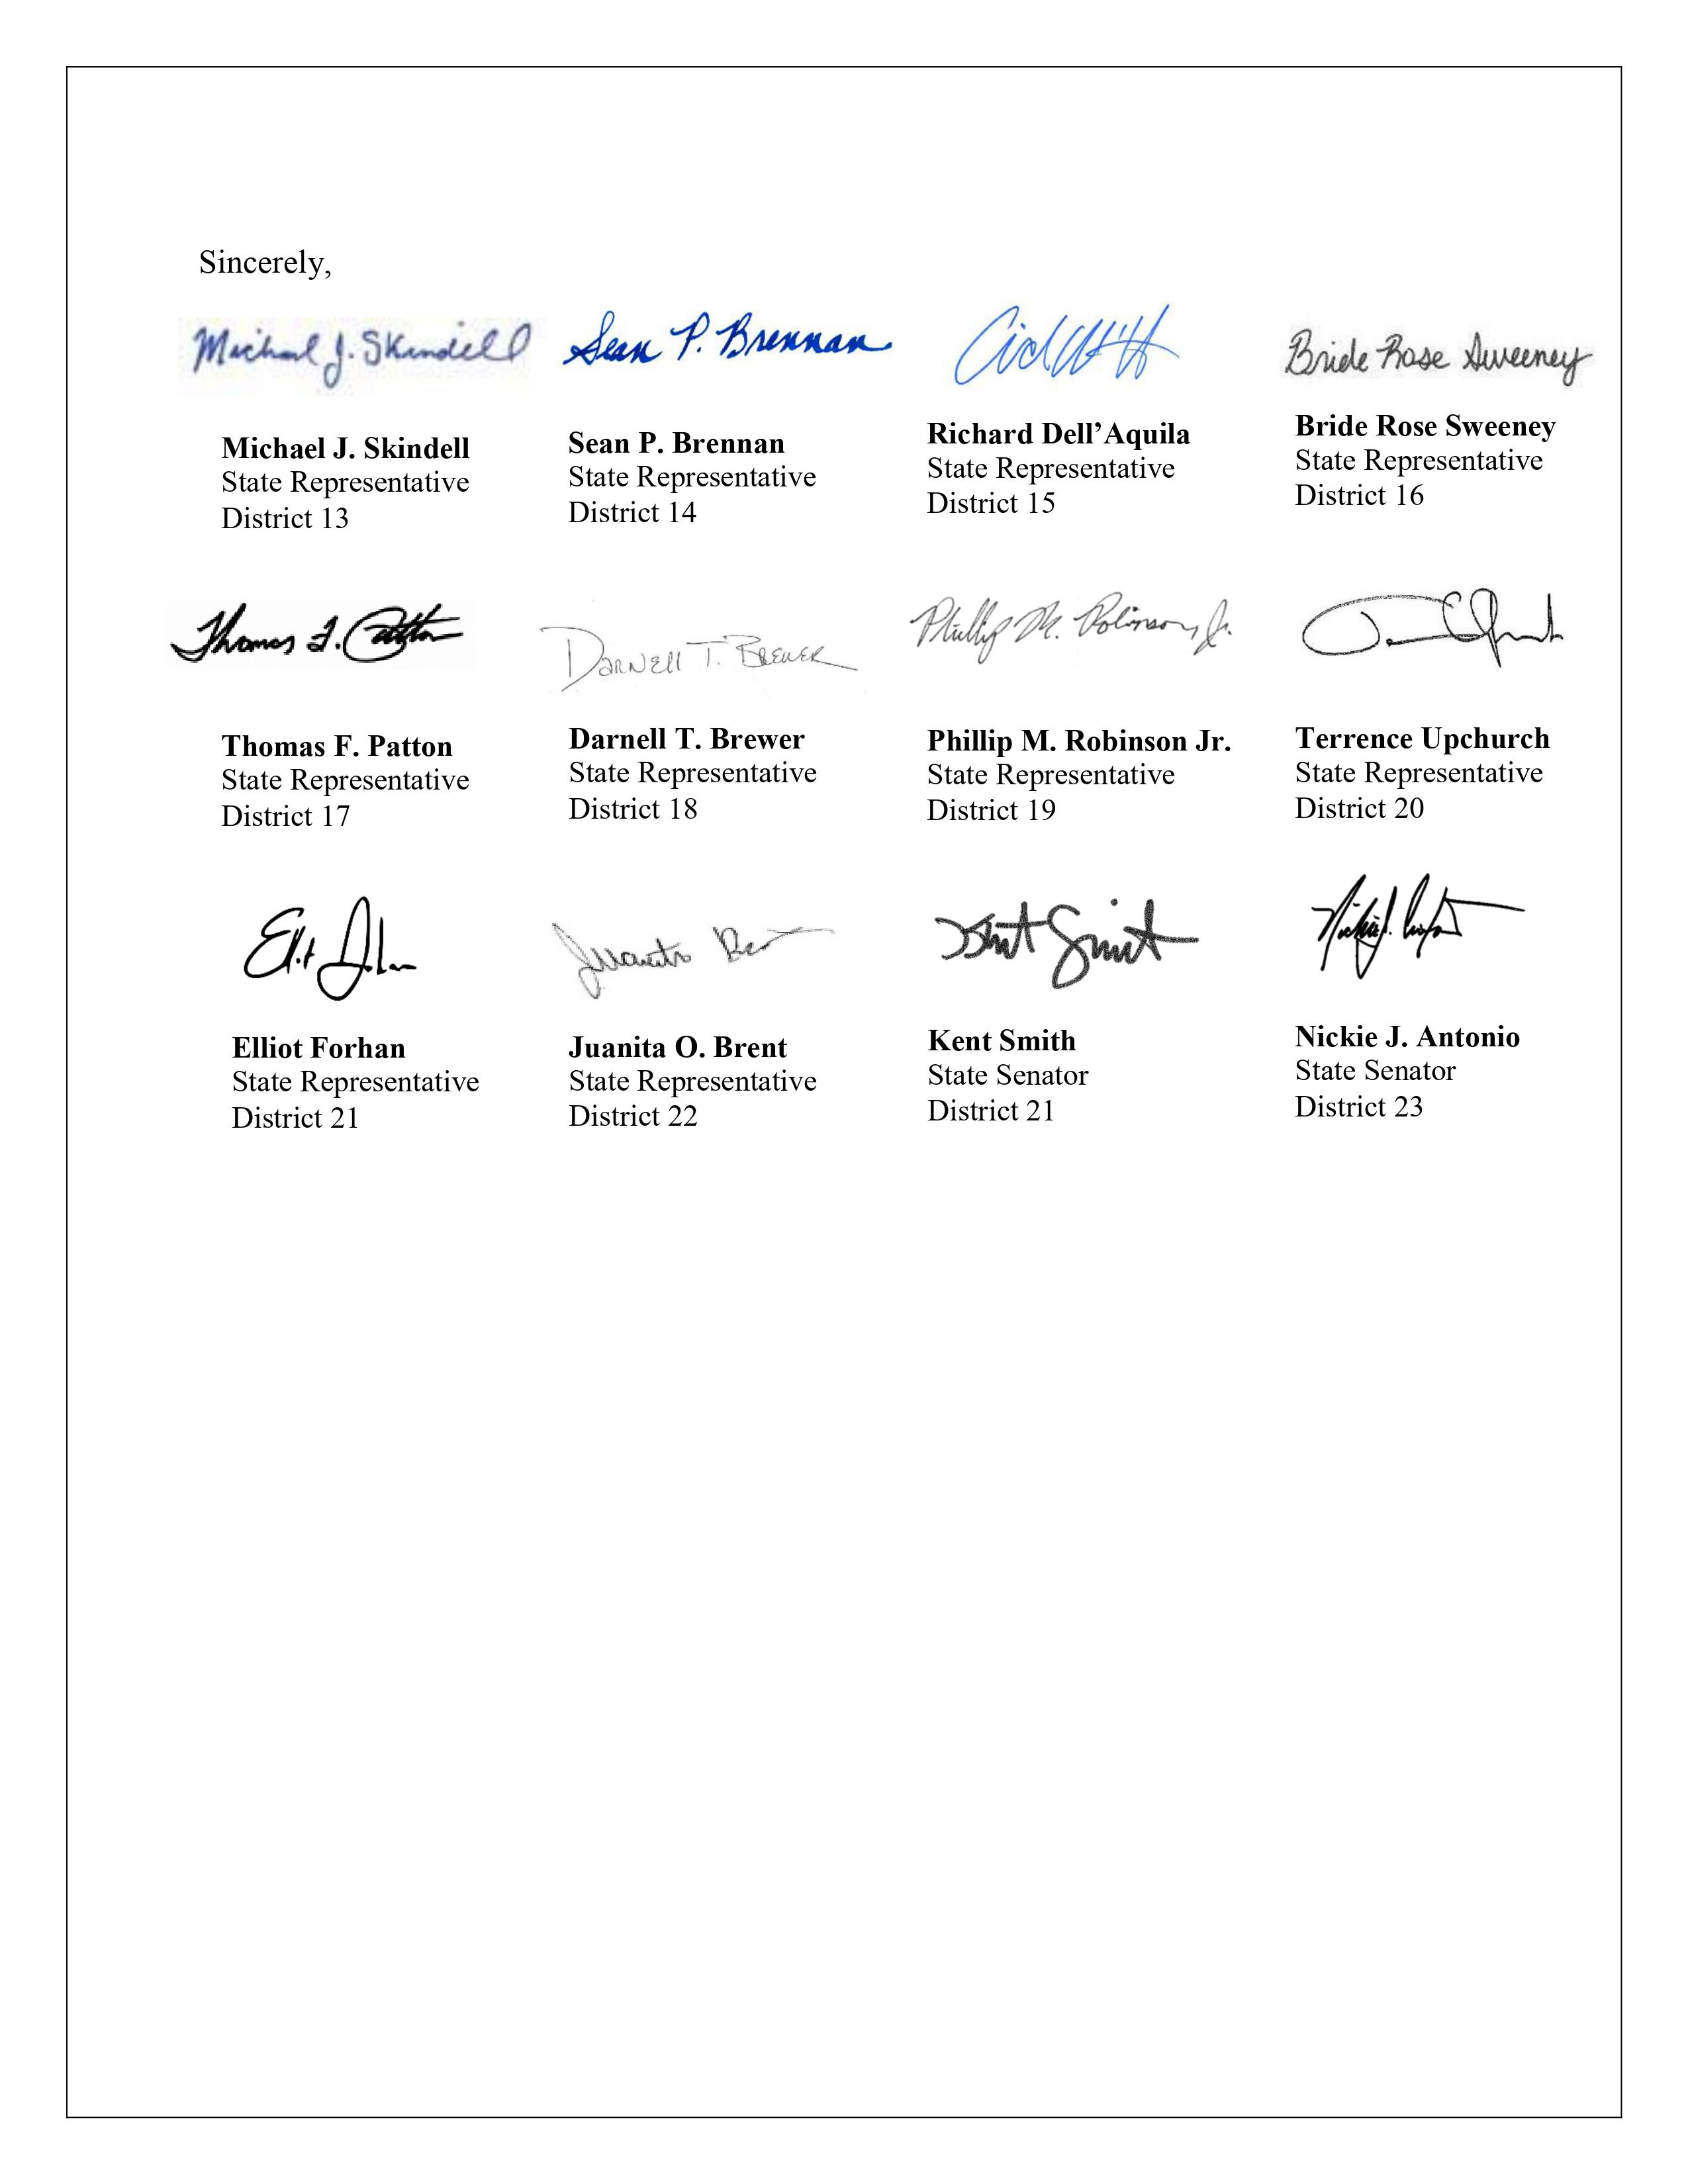 Sincerely,
Michael J. Skindell Sean P. Brennan Bride Rose Sweeney
Michael J. Skindell Sean P. Brennan Richard Dell’Aquila Bride Rose Sweeney
State Representative State Representative State Representative State Representative
District 13 District 14 District 15 District 16
Thomas F. Patton Darnell T. Brewer Phillip M. Robinson, Jr.
Thomas F. Patton Darnell T. Brewer Phillip M. Robinson Jr. Terrence Upchurch
State Representative State Representative State Representative State Representative
District 17 District 18 District 19 District 20
Juanita Kent Smith
Elliot Forhan Juanita O. Brent Kent Smith Nickie J. Antonio
State Representative State Representative State Senator State Senator
District 21 District 22 District 21 District 23